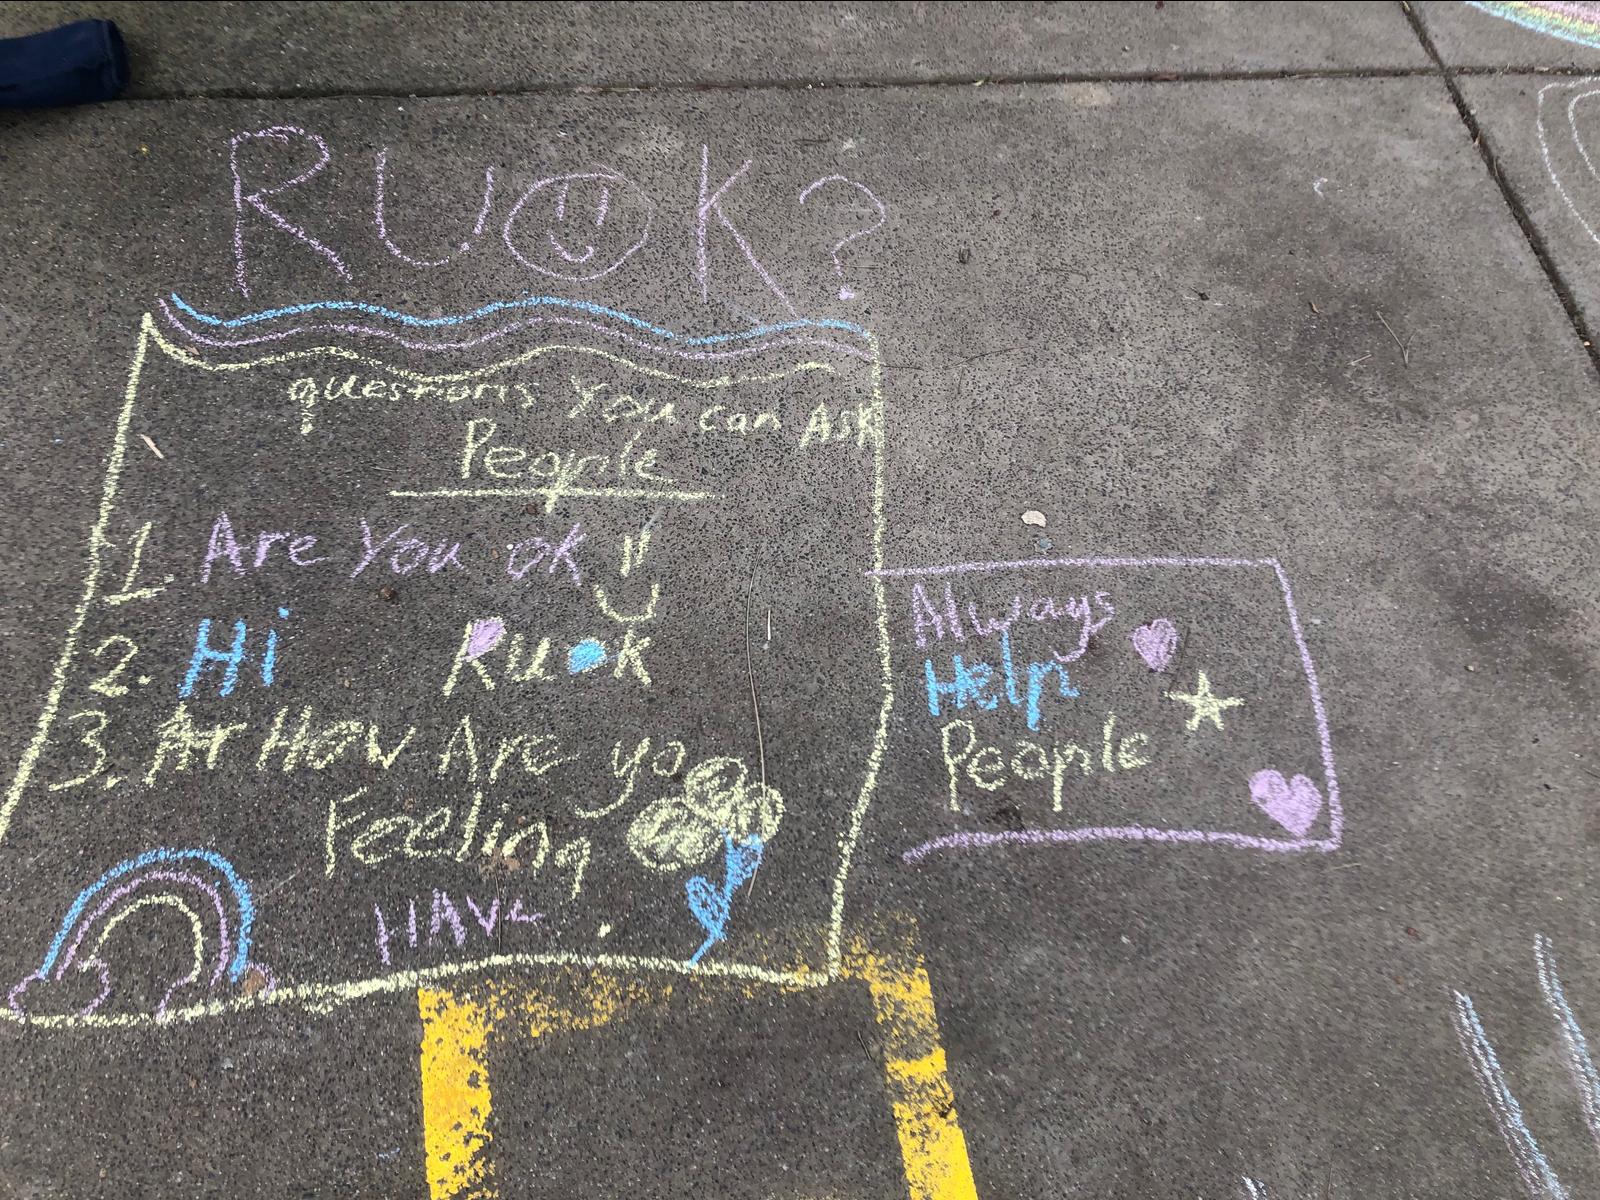 RUOK?
questions You can Ask
People
1. Are You ok
2. Hi Ruok
3. How Are yo
Feeling
HAVe
Always
Help
People